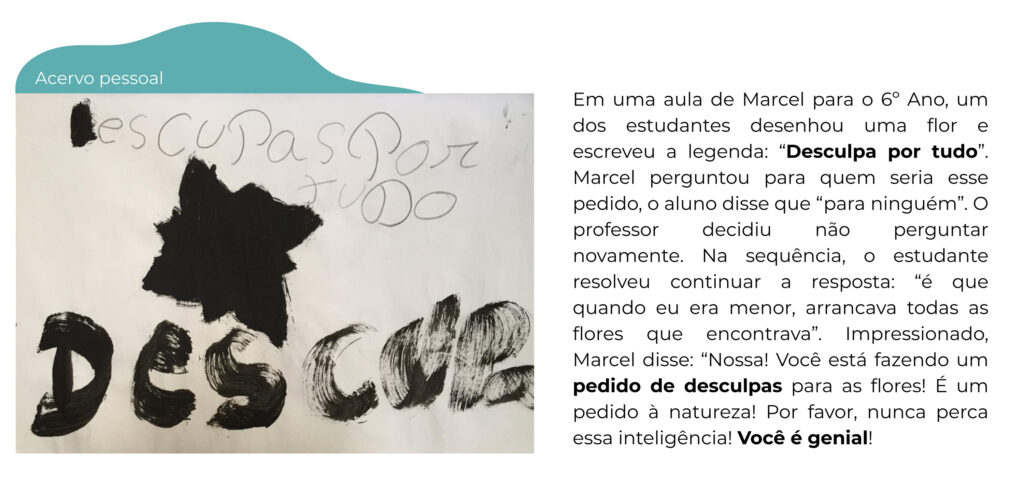 Acervo pessoal
DescuPas Por
tuDo
DescuP
Em uma aula de Marcel para o 6º Ano, um
dos estudantes desenhou uma flor e
escreveu a legenda: “Desculpa por tudo”.
Marcel perguntou para quem seria esse
pedido, o aluno disse que “para ninguém”. O
professor decidiu não perguntar
novamente. Na sequência, o estudante
resolveu continuar a resposta: “é que
quando eu era menor, arrancava todas as
flores que encontrava”. Impressionado,
Marcel disse: “Nossa! Você está fazendo um
pedido de desculpas para as flores! É um
pedido à natureza! Por favor, nunca perca
essa inteligência! Você é genial!